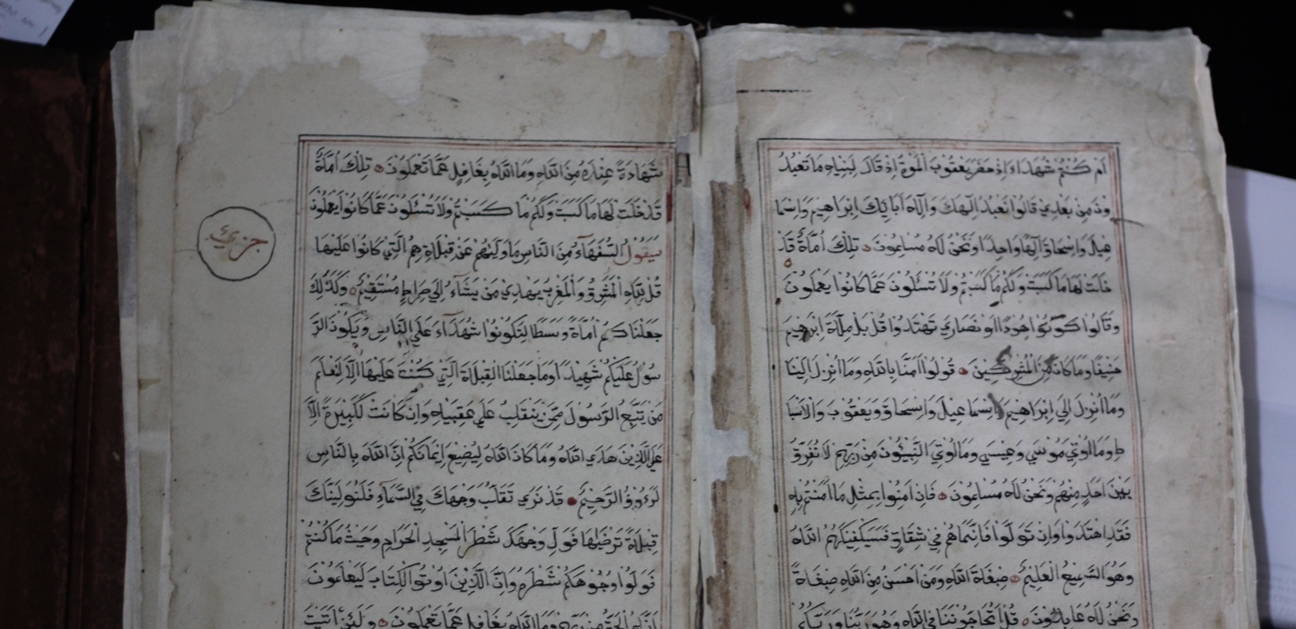 ام كنتم شهداء إذ حضر يعقوب الموت إذ قال لبنيه ما تعبد
ون من بعدي قالوا نعبد إلهك وإله آبائك إبراهيم وإسما
عيل وإسحاق إلها واحدا ونحن له مسلمون تلك أمة قد
خلت لها ما كسبت ولكم ما كسبتم ولا تسئلون عما كانوا يعملون
وقالوا كونوا هودا أو نصارى تهتدوا قل بل ملة إبراهيم
حنيفا وما كان من المشركين قولوا آمنا بالله وما أنزل إلينا
وما أنزل إلى إبراهيم وإسماعيل وإسحاق ويعقوب والأسبا
ط وما أوتي موسى وعيسى وما أوتي النبيئون من ربهم لا نفرق
بين أحد منهم ونحن له مسلمون فإن آمنوا بمثل ما آمنتم به
فقد اهتدوا وإن تولوا فإنما هم في شقاق فسيكفيكهم الله
وهو السميع العليم صبغة الله ومن أحسن من الله صبغة
ونحن له عابدون قل أتحاجوننا في الله وهو ربنا وربكم
شهادة عنده من الله وما الله بغافل عما تعملون تلك أمة
قد خلت لها ما كسبت ولكم ما كسبتم ولا تسئلون عما كانوا يعملون
سيقول السفهاء من الناس ما وليهم عن قبلتهم التي كانوا عليها
قل لله المشرق والمغرب يهدي من يشاء إلى صراط مستقيم وكذلك
جعلناكم أمة وسطا لتكونوا شهداء على الناس ويكون الر
سول عليكم شهيدا وما جعلنا القبلة التي كنت عليها إلا لنعلم
من يتبع الرسول ممن ينقلب على عقبيه وإن كانت لكبيرة إلا
على الذين هدى الله وما كان الله ليضيع إيمانكم إن الله بالناس
لرءوف الرحيم قد نرى تقلب وجهك في السماء فلنولينك
قبلة ترضيها فول وجهك شطر المسجد الحرام وحيث ما كنتم
فولوا وجوهكم شطره وإن الذين أوتوا الكتاب ليعلمون
أنه الحق من ربهم وما الله بغافل عما تعملون ولئن أتيت